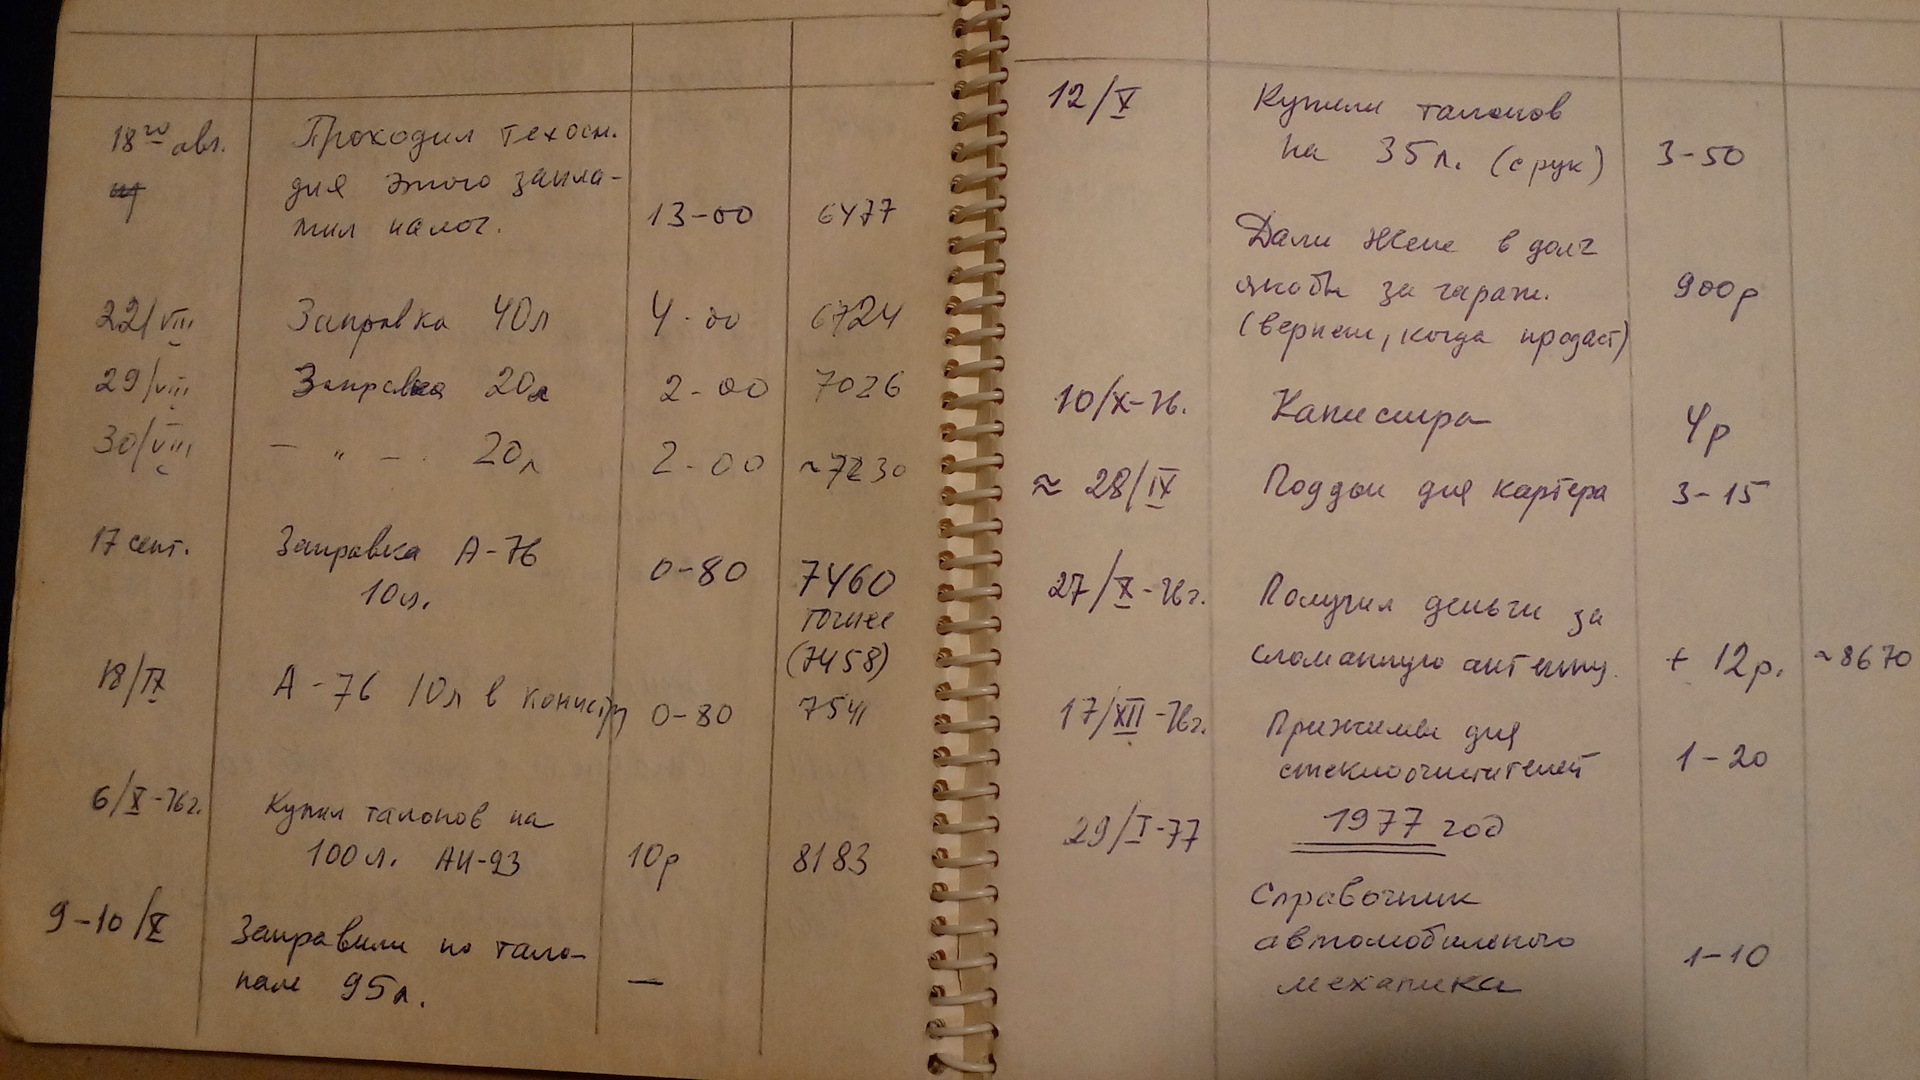 18го авг. Проходил техосм.
для этого запла-
тил налог. 13-00 6477
22/VIII Заправка 40л 4-00 6724
29/VIII Заправка 20л 2-00 7026
30/VIII — „ — 20л 2-00 ~7230
17 сент. Заправка А-76
10л. 0-80 7460
точнее
(7458)
18/IX А-76 10л в канистр 0-80 7541
6/X-76г. Купил талонов на
100л. АИ-93 10р 8183
9-10/X Заправили по тало-
нам 95л. —
12/X Купили талонов
на 35л. (с рук) 3-50
Дали Жене в долг
якобы за гараж. 900р
(вернет, когда продаст)
10/X-76. Канистра 4р
≈ 28/IX Поддон для картера 3-15
27/X-76г. Получил деньги за
сломанную антенну. + 12р. ~8670
17/XII-76г. Прижимы для
стеклоочистителей 1-20
29/I-77 1977 год
Справочник
автомобильного
механика 1-10